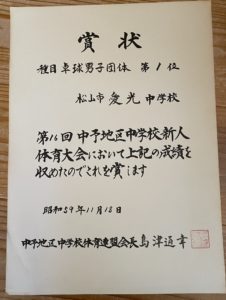 賞状
種目 卓球男子団体 第1位
松山市 愛光 中学校
第16回 中予地区中学校新人
体育大会において上記の成績を
収めたのでこれを賞します
昭和59年11月18日
中予地区中学校体育連盟会長 島津通幸